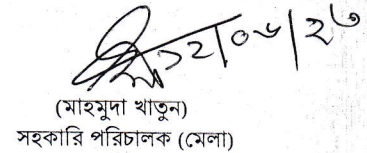 ১২/০৬/২৩
(মাহমুদা খাতুন)
সহকারি পরিচালক (মেলা)